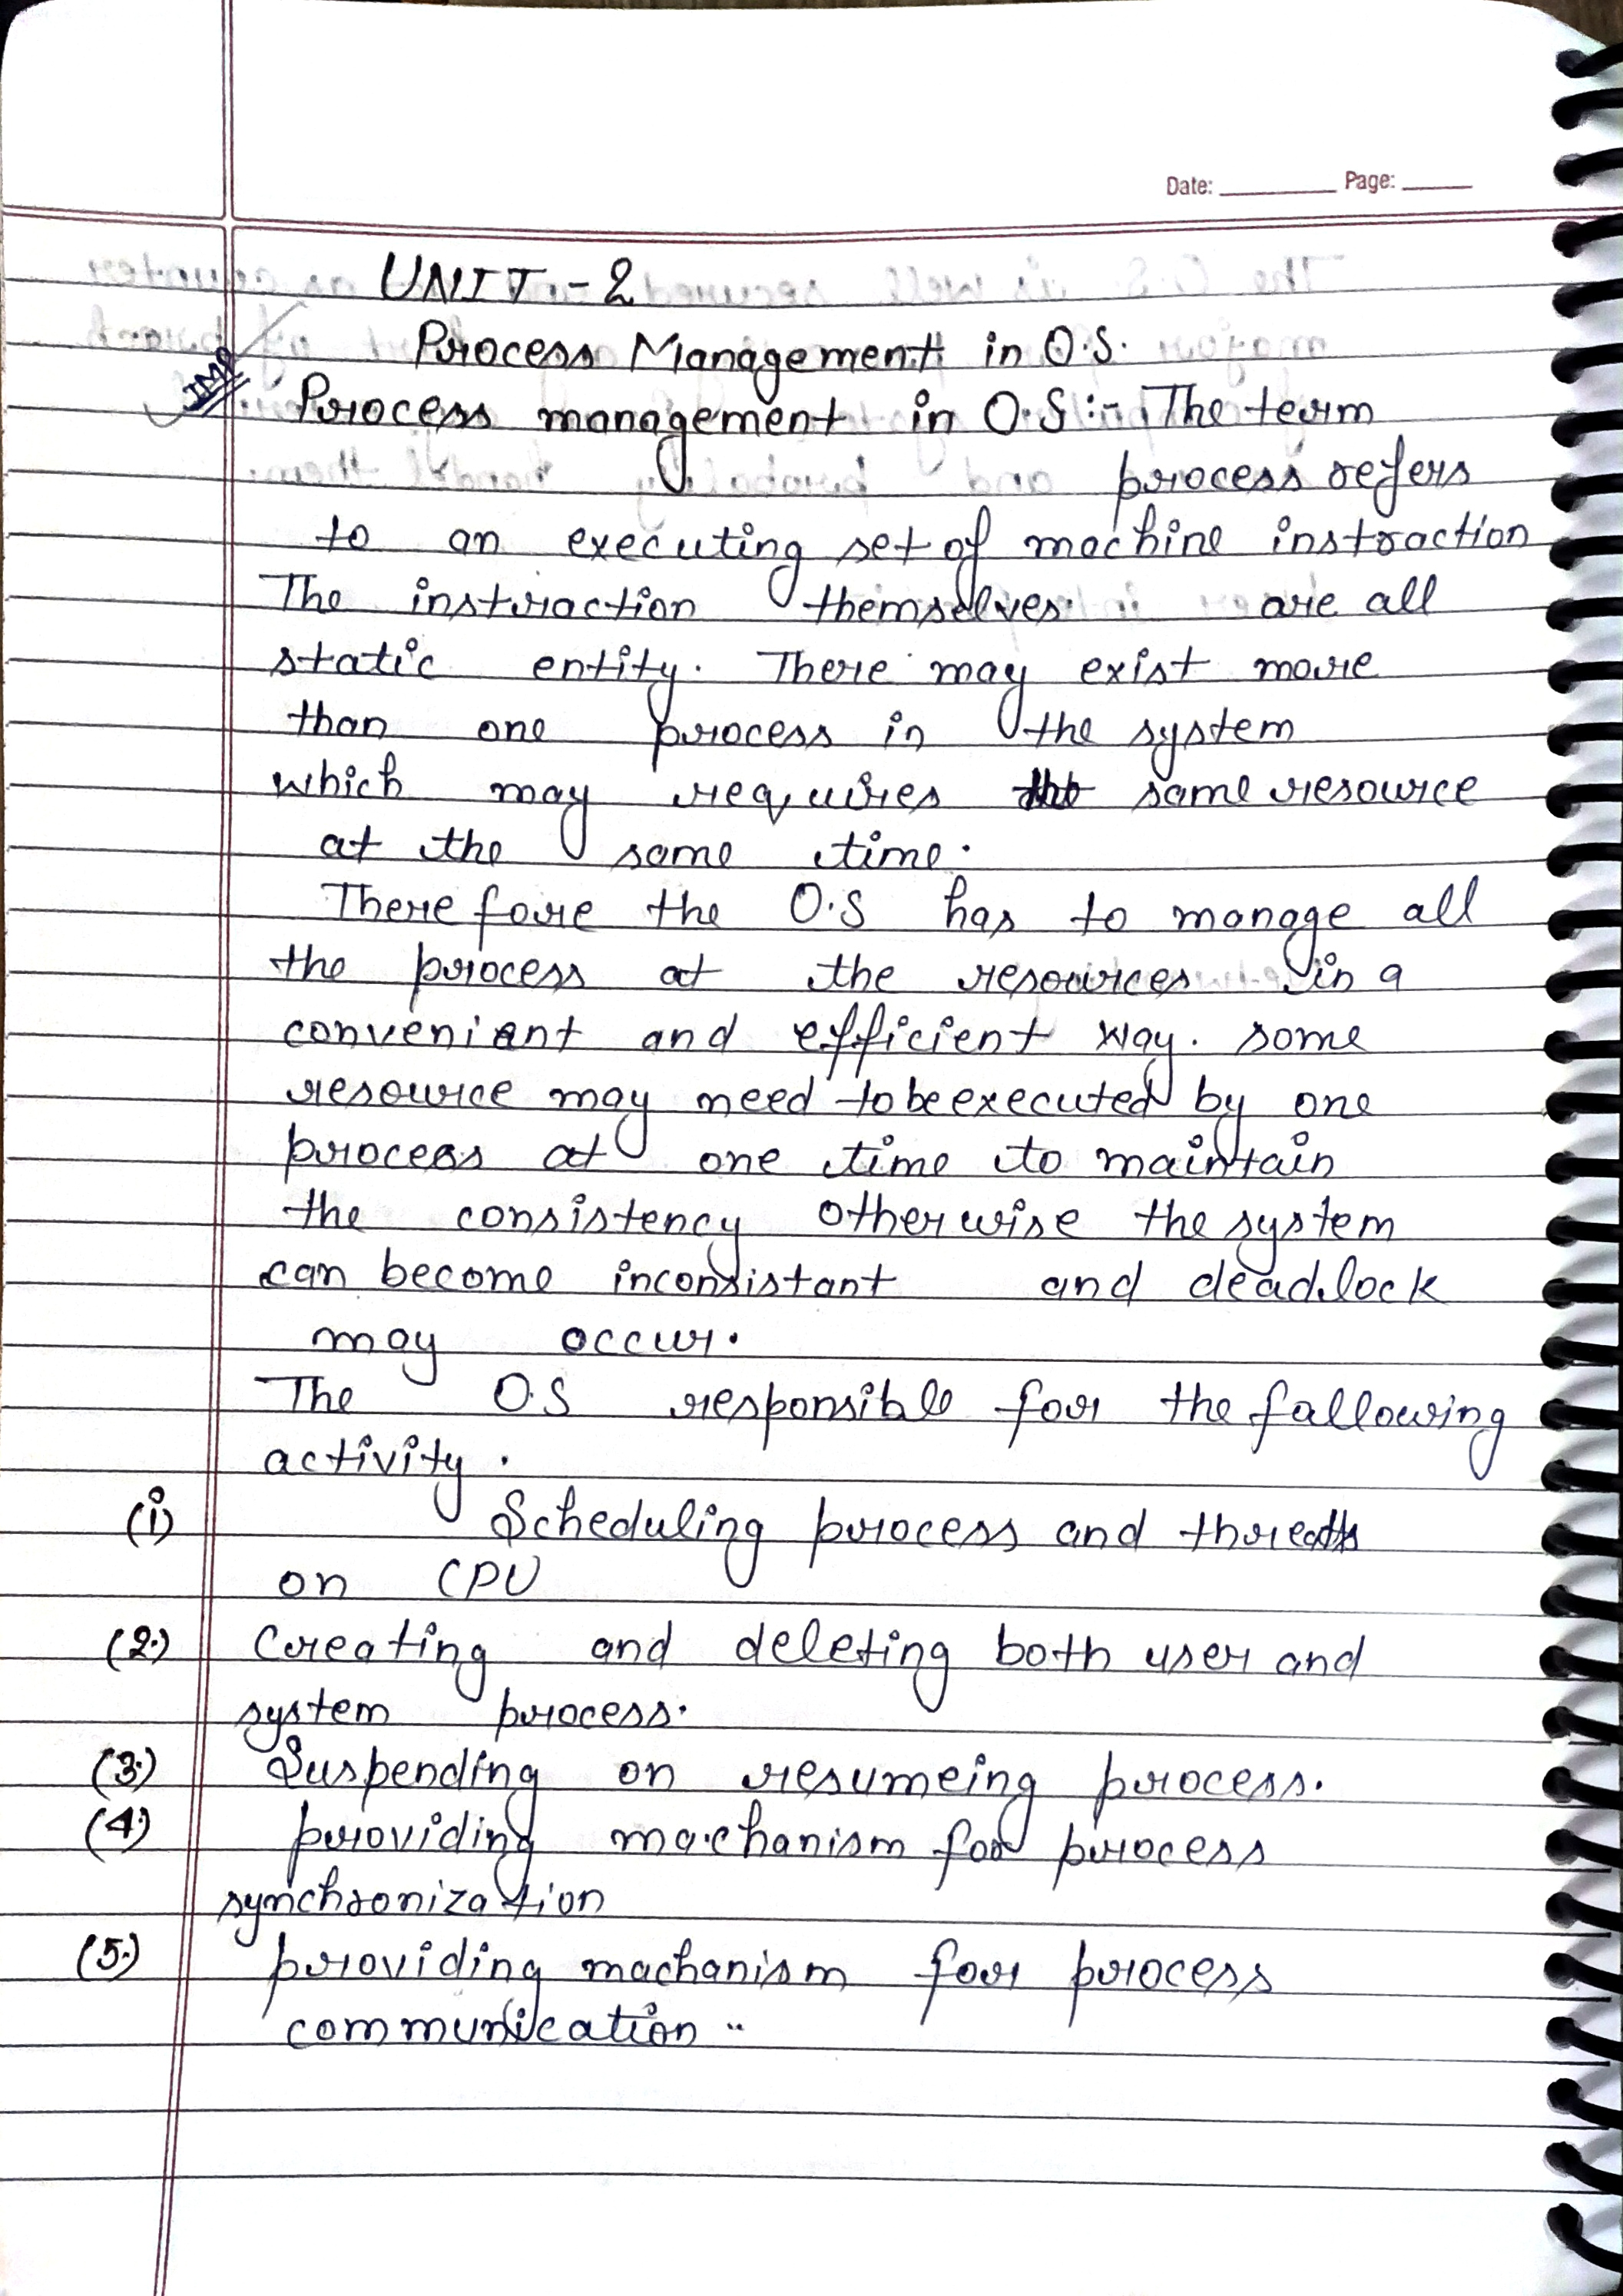 Date: Page:
UNIT-2
Process Management in O.S.
IMP
Process management in O.S:- The term
process refers
to an executing set of machine instraction
The instraction themselves are all
static entity. There may exist more
than one process in the system
which may requires same resource
at the same time.
Therefore the O.S has to manage all
the process at the resources in a
convenient and efficient way. some
resource may need to be executed by one
process at one time to maintain
the consistency otherwise the system
can become inconsistant and deadlock
may occur.
The O.S responsible for the fallowing
activity.
(i) Scheduling process and threads
on CPU
(2.) Creating and deleting both user and
system process.
(3.) Suspending on resumeing process.
(4.) providing machanism for process
synchronization
(5.) providing machanism for process
communication..